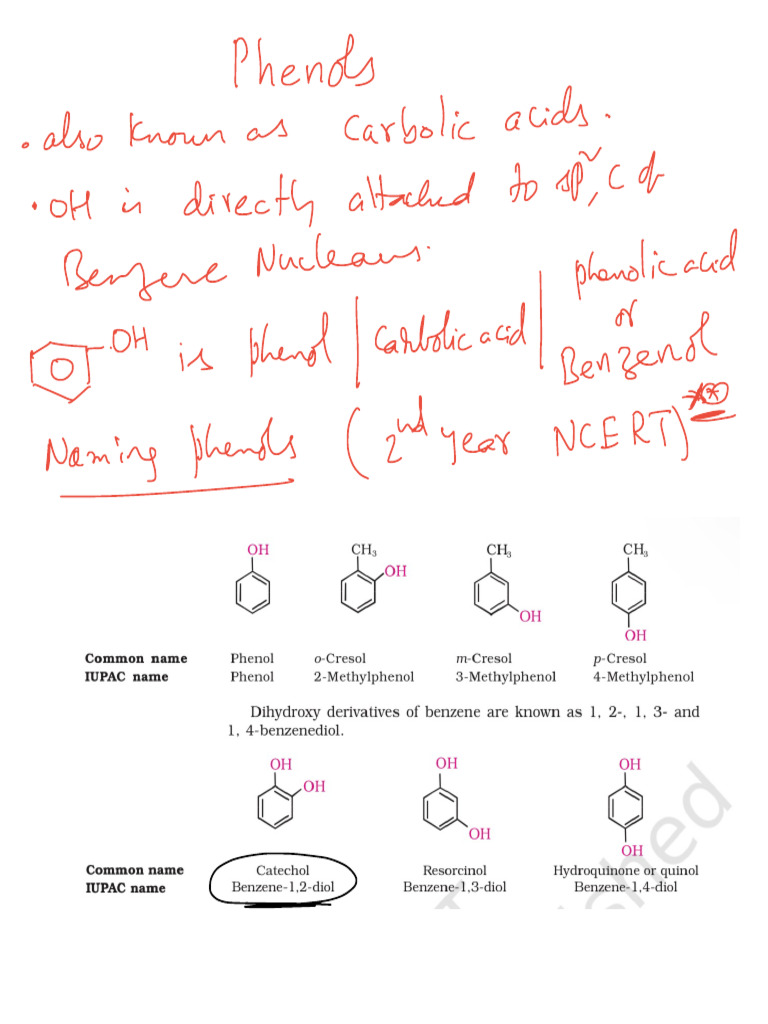 Phenols
• also known as carbolic acids.
• OH is directly attached to sp², C of
Benzene Nucleaus.
OH is phenol | Carbolic acid | phenolic acid or Benzenol
Naming phenols (2nd year NCERT)
OH CH₃ OH CH₃ OH CH₃ OH
Common name Phenol o-Cresol m-Cresol p-Cresol
IUPAC name Phenol 2-Methylphenol 3-Methylphenol 4-Methylphenol
Dihydroxy derivatives of benzene are known as 1, 2-, 1, 3- and
1, 4-benzenediol.
OH OH OH OH OH OH
Common name Catechol Resorcinol Hydroquinone or quinol
IUPAC name Benzene-1,2-diol Benzene-1,3-diol Benzene-1,4-diol